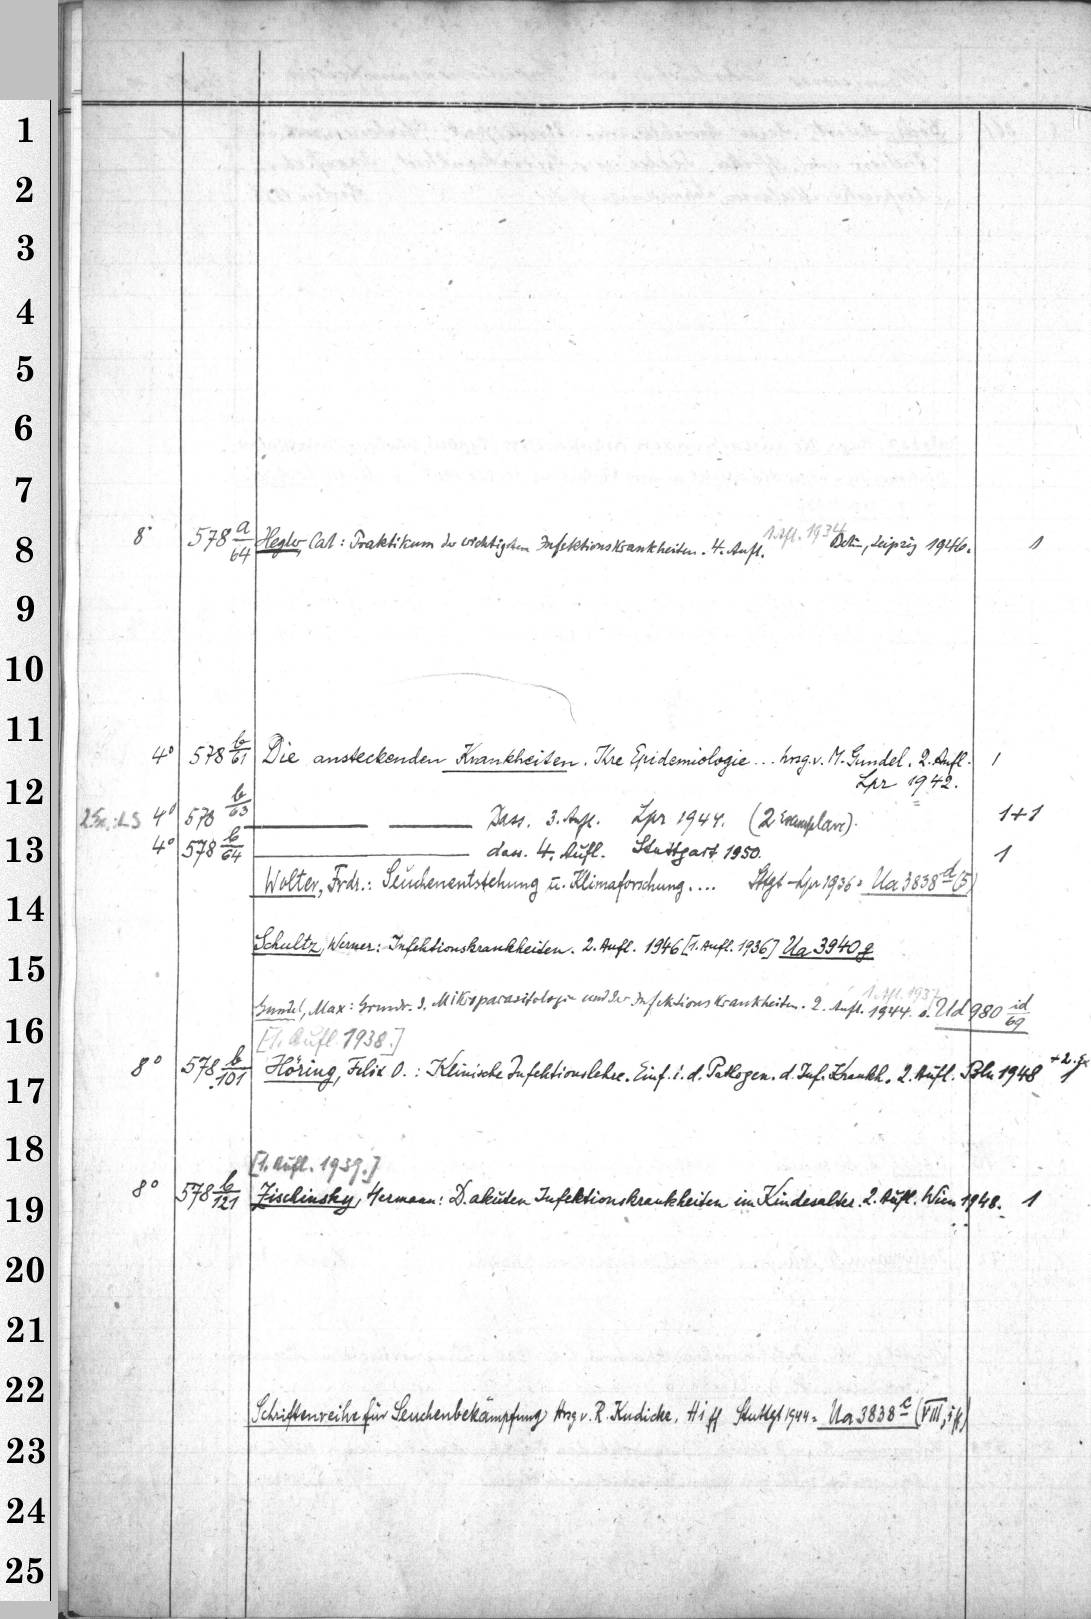 1
2
3
4
5
6
7
1. Afl. 1934
8 8° 578 a/64 Hegler, Carl: Praktikum der wichtigsten Infektionskrankheiten. 4. Aufl. Berlin, Leipzig 1946. 1
9
10
11 4° 578 b/61 Die ansteckenden Krankheiten. Ihre Epidemiologie... hrsg. v. M. Gundel. 2. Aufl. 1
12 Lpz 1942.
2 Ex.: LS 4° 578 b/63 Dass. 3. Aufl. Lpz 1944. (2 Exemplare). 1+1
13 4° 578 b/64 dass. 4. Aufl. Stuttgart 1950. 1
14 Wolter, Frdr.: Seuchenentstehung u. Klimaforschung.... Sttgt-Lpz 1936 = Ua 3838 d (5)
15 Schultz, Werner: Infektionskrankheiten. 2. Aufl. 1946 [1. Aufl. 1936] Ua 3940 g
1. Afl. 1937
Gundel, Max: Grundr. d. Mikroparasitologie und der Infektionskrankheiten. 2. Aufl. 1944. s. Ud 980 id/69
16 [1. Aufl. 1938.]
17 8° 578 b/101 Höring, Felix O.: Klinische Infektionslehre. Einf. i. d. Pathogen. d. Inf. Krankh. 2. Aufl. Bln 1948 1 +2. Ex
18 [1. Aufl. 1939.]
19 8° 578 b/121 Zischinsky, Hermann: D. akuten Infektionskrankheiten im Kindesalter. 2. Aufl. Wien 1948. 1
20
21
22 Schriftenreihe für Seuchenbekämpfung, Hrsg v. R. Kudicke, H 1 ff Stuttgt 1944 = Ua 3838 c (VIII,
23
24
25